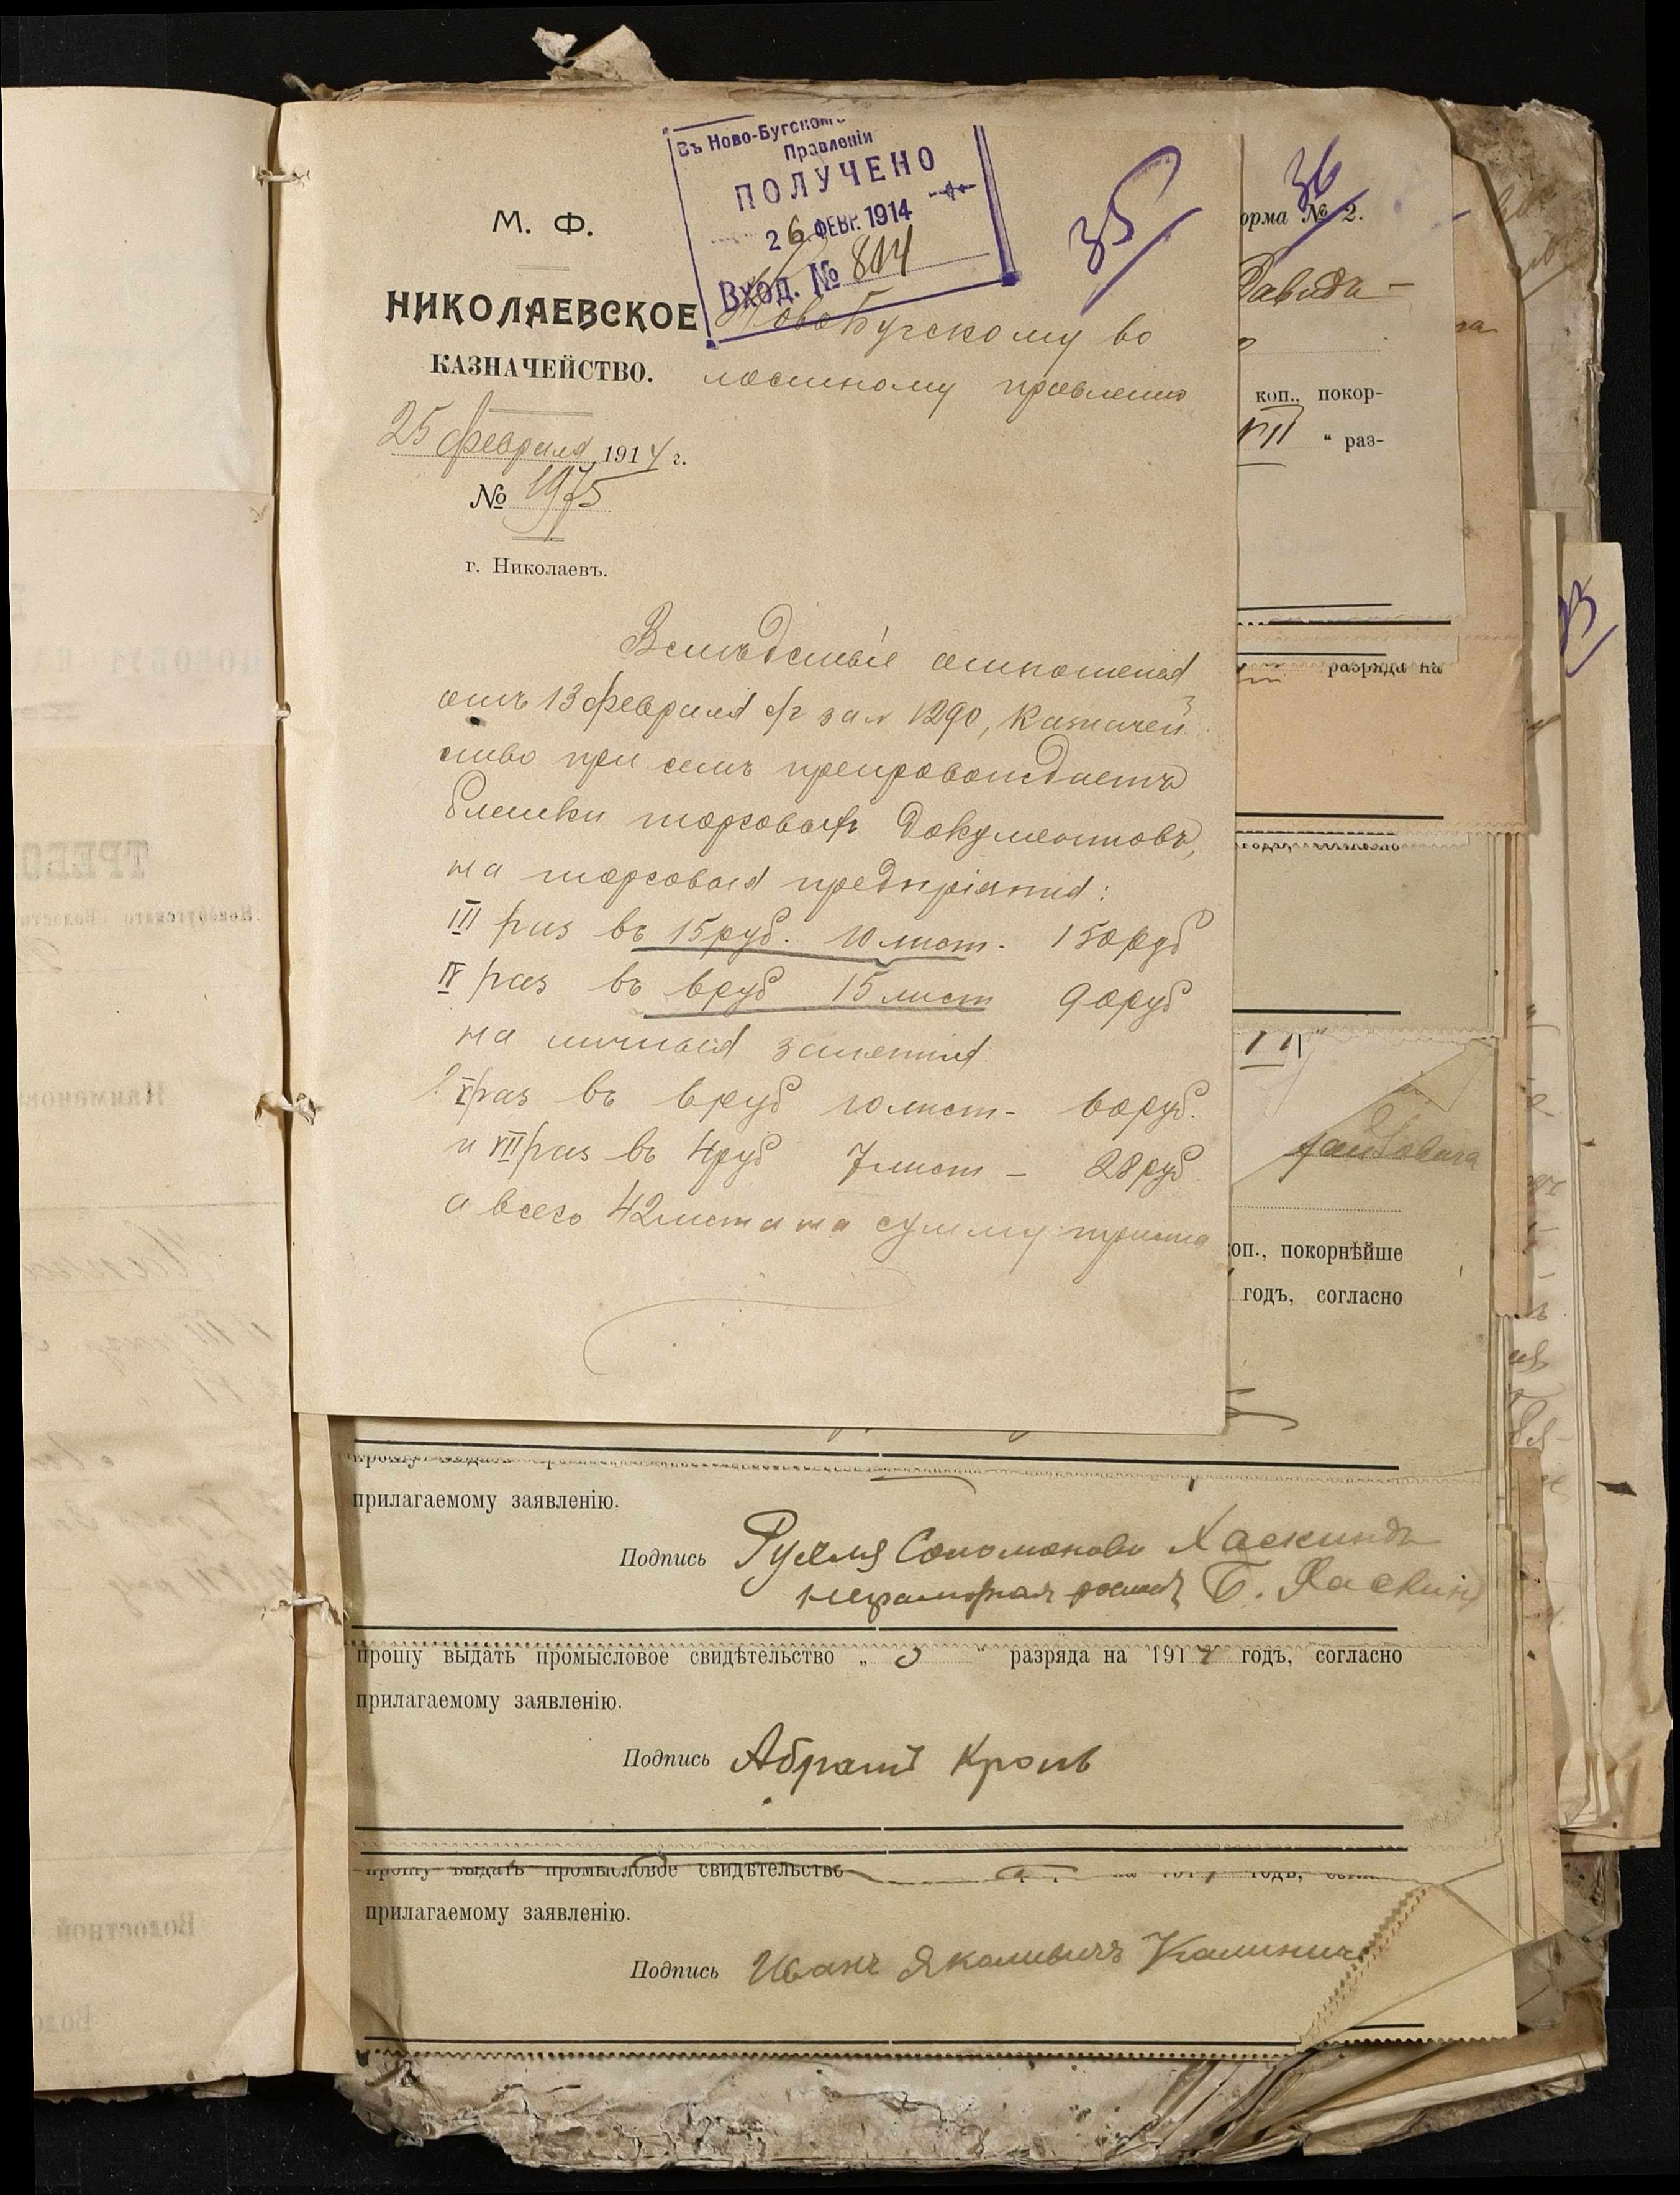 Въ Ново-Бугском
Правленіи
ПОЛУЧЕНО
26 ФЕВР. 1914
Вход. № 814
35
М. Ф.
НИКОЛАЕВСКОЕ
КАЗНАЧЕЙСТВО.
25 февраля 1914 г.
№ 1975
г. Николаевъ.
Новобугскому во
лостному правленію
Вслѣдствіе отношенія
отъ 13 февраля с/г за № 1290, Казначей
ство при семъ препровождаетъ
бланки торговыхъ документовъ,
на торговыя предпріятія:
III раз въ 15 руб. 10 лист. 150 руб
IV раз въ 6 руб 15 лист 90 руб
на личныя занятія
раз въ 6 руб 10 лист - 60 руб.
и VII раз въ 4 руб 7 лист - 28 руб
а всего 42 листа на сумму триста
36
орма № 2.
Давида-
коп., покор-
VII " раз-
33
разряда на
оп., покорнѣйше
годъ, согласно
прилагаемому заявленію.
Подпись Рухля Соломоновн Хаскиндъ
неграмотная Б. Хаскинд
прошу выдать промысловое свидѣтельство „ 3 " разряда на 1914 годъ, согласно
прилагаемому заявленію.
Подпись Абрамъ Кроль
прошу выдать промысловое свидѣтельство
прилагаемому заявленію.
Подпись Иванъ Якаливичъ Калинич